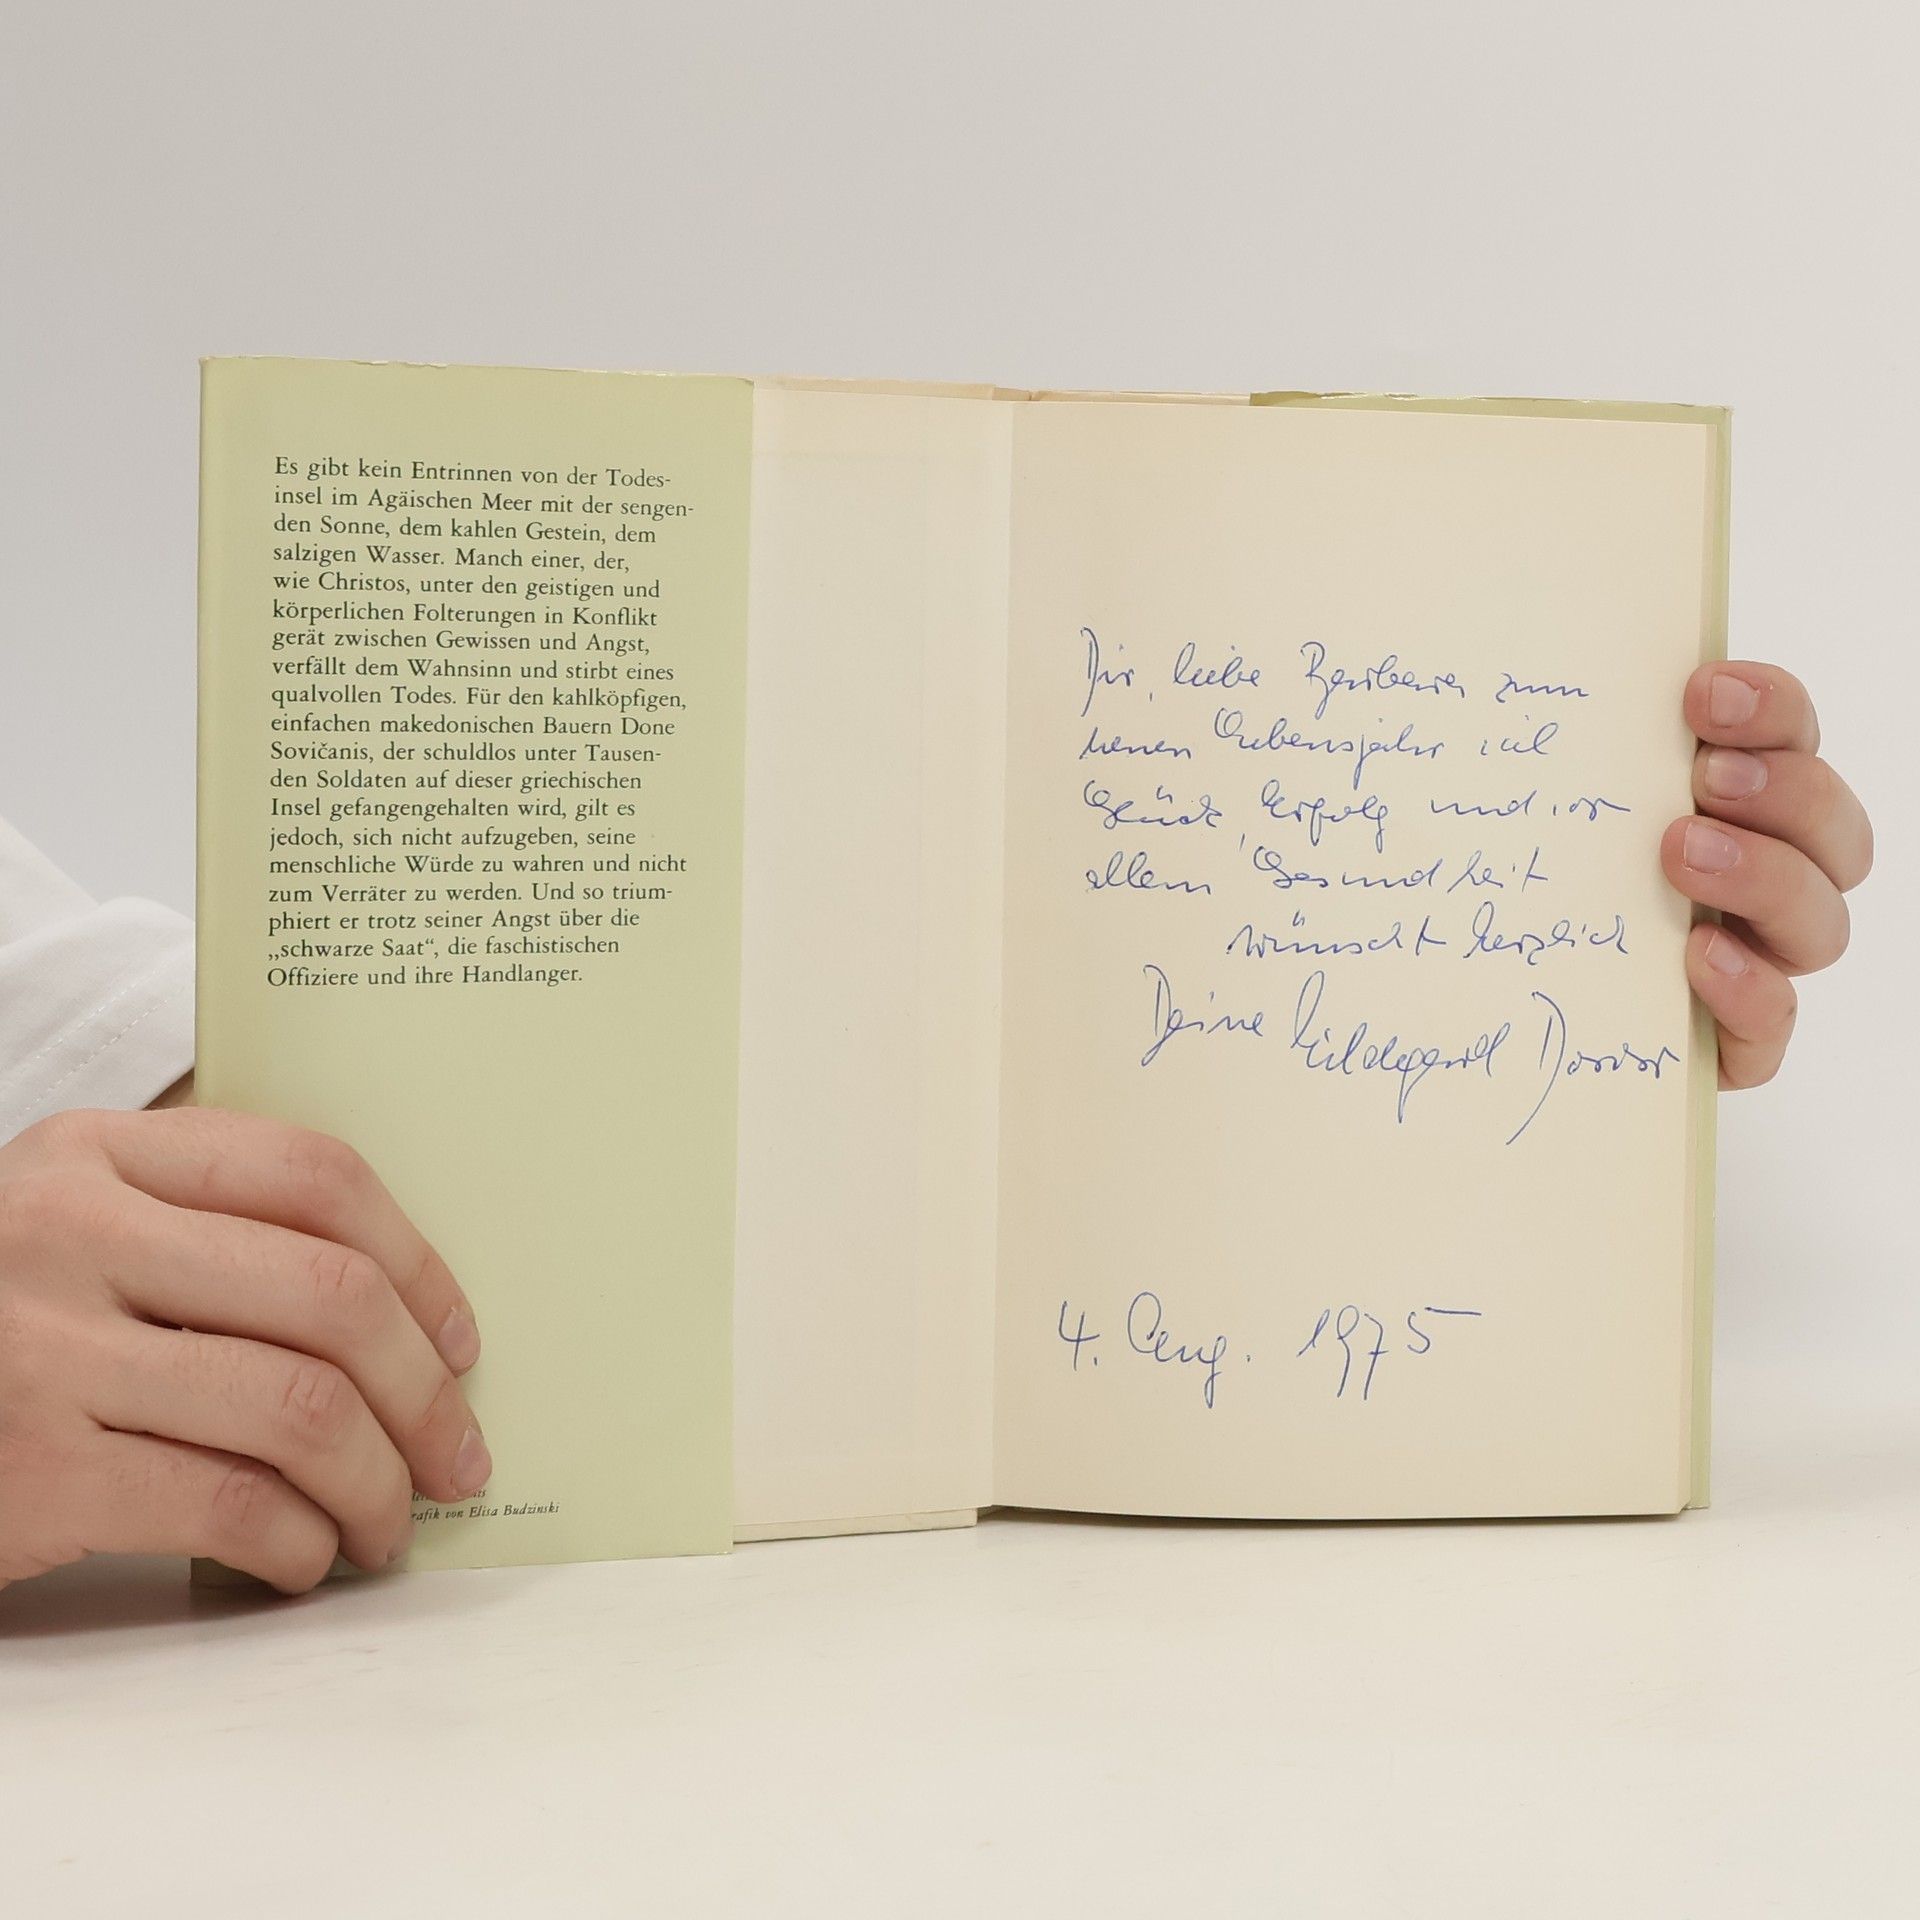 Es gibt kein Entrinnen von der Todes-
insel im Agäischen Meer mit der sengen-
den Sonne, dem kahlen Gestein, dem
salzigen Wasser. Manch einer, der,
wie Christos, unter den geistigen und
körperlichen Folterungen in Konflikt
gerät zwischen Gewissen und Angst,
verfällt dem Wahnsinn und stirbt eines
qualvollen Todes. Für den kahlköpfigen,
einfachen makedonischen Bauern Done
Sovičanis, der schuldlos unter Tausen-
den Soldaten auf dieser griechischen
Insel gefangengehalten wird, gilt es
jedoch, sich nicht aufzugeben, seine
menschliche Würde zu wahren und nicht
zum Verräter zu werden. Und so trium-
phiert er trotz seiner Angst über die
„schwarze Saat“, die faschistischen
Offiziere und ihre Handlanger.
von Elisa Budzinski
Dir, liebe Barbara zum
neuen Lebensjahr viel
Glück, Erfolg und vor
allem Gesundheit
wünscht herzlich
Deine Hildegard
4. Aug. 1975